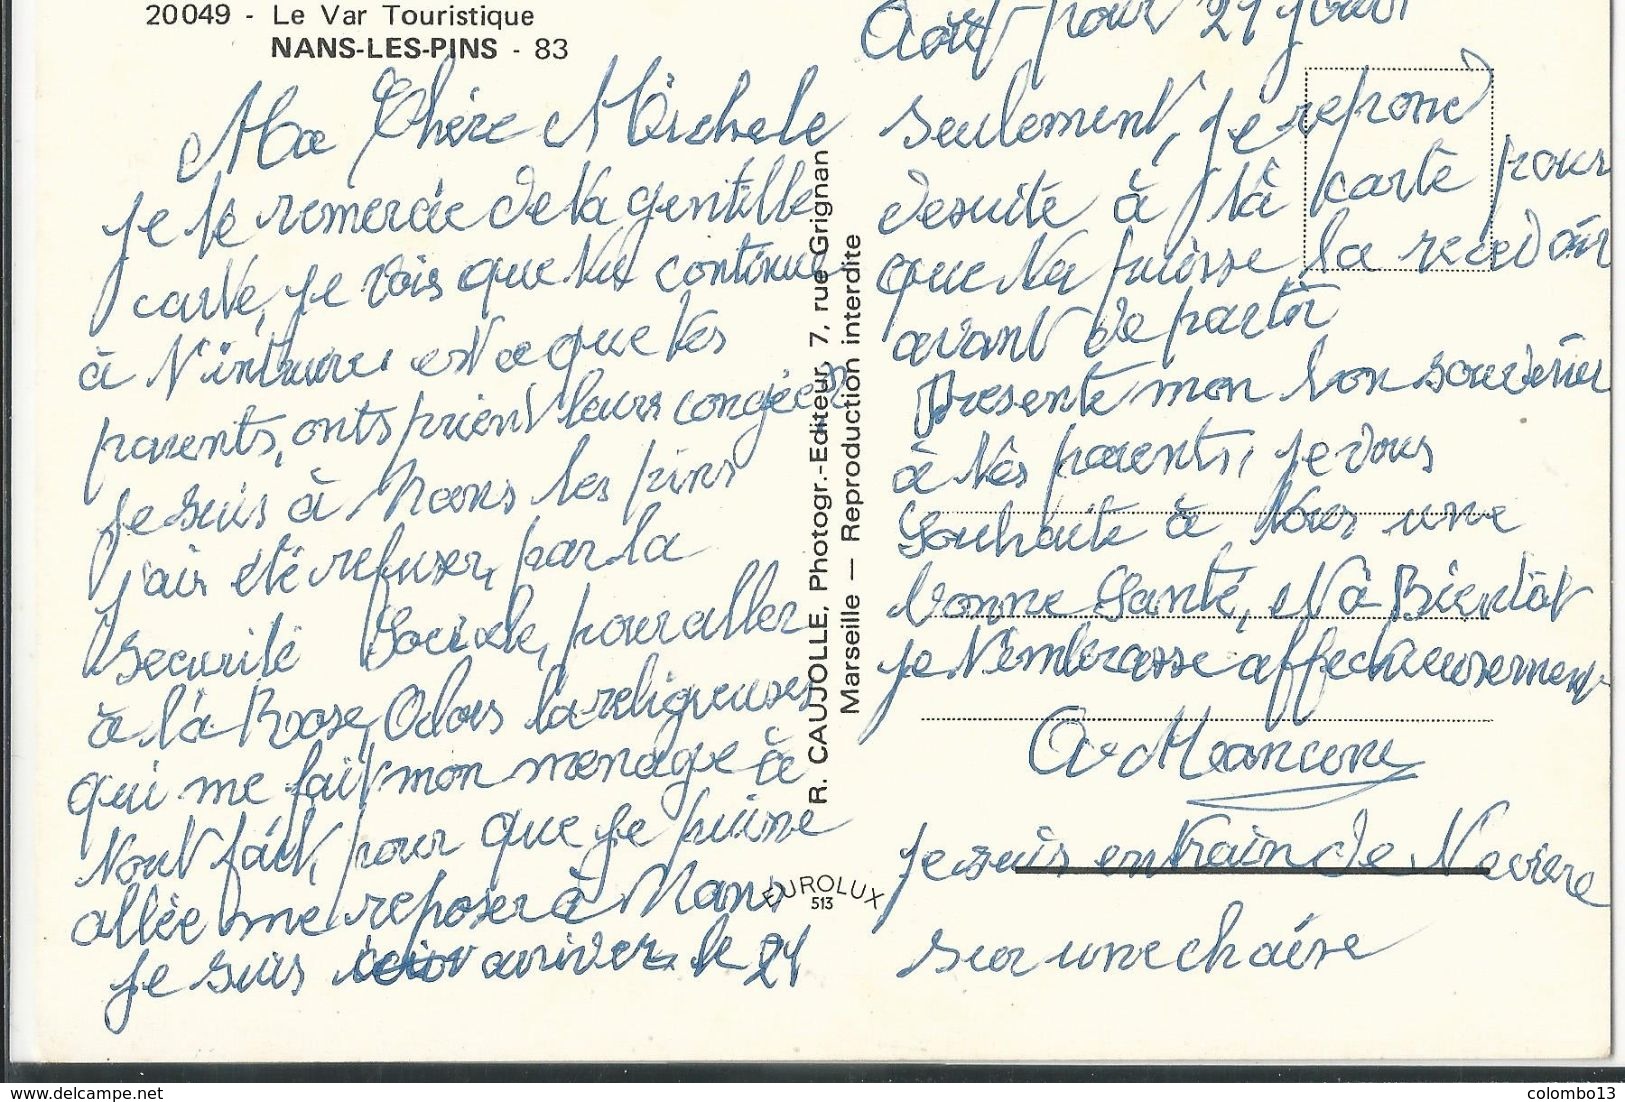 20049 - Le Var Touristique
NANS-LES-PINS - 83
Ma Chère Michele
je te remercie de ta gentille
carte, je vois que tu continue
à t'intruire. est ce que tes
parents, onts prient leurs congéés
je suis à Nans les pins
j'ais été refuser, par la
securité Sociale, pour aller
à la Rose, alors la religieuses
qui me fait mon menage à
tout fait, pour que je puisse
allée me reposer à Nans
je suis ariver le 24
Août pour 21 jours
seulement, je repond
desuite à ta carte pour
que tu puisse la recevoir
avant de partir
Presente mon bon souvenir
à tes parents, je vous
souhaite à tous une
bonne Santé, et à Bientôt
je t'embrasse affectueusement
je suis entrain de
sur une chaise
R. CAUJOLLE, Photogr.-Editeur, 7, rue Grignan
Marseille — Reproduction interdite
EUROLUX
513
delcampe.net
colombo13